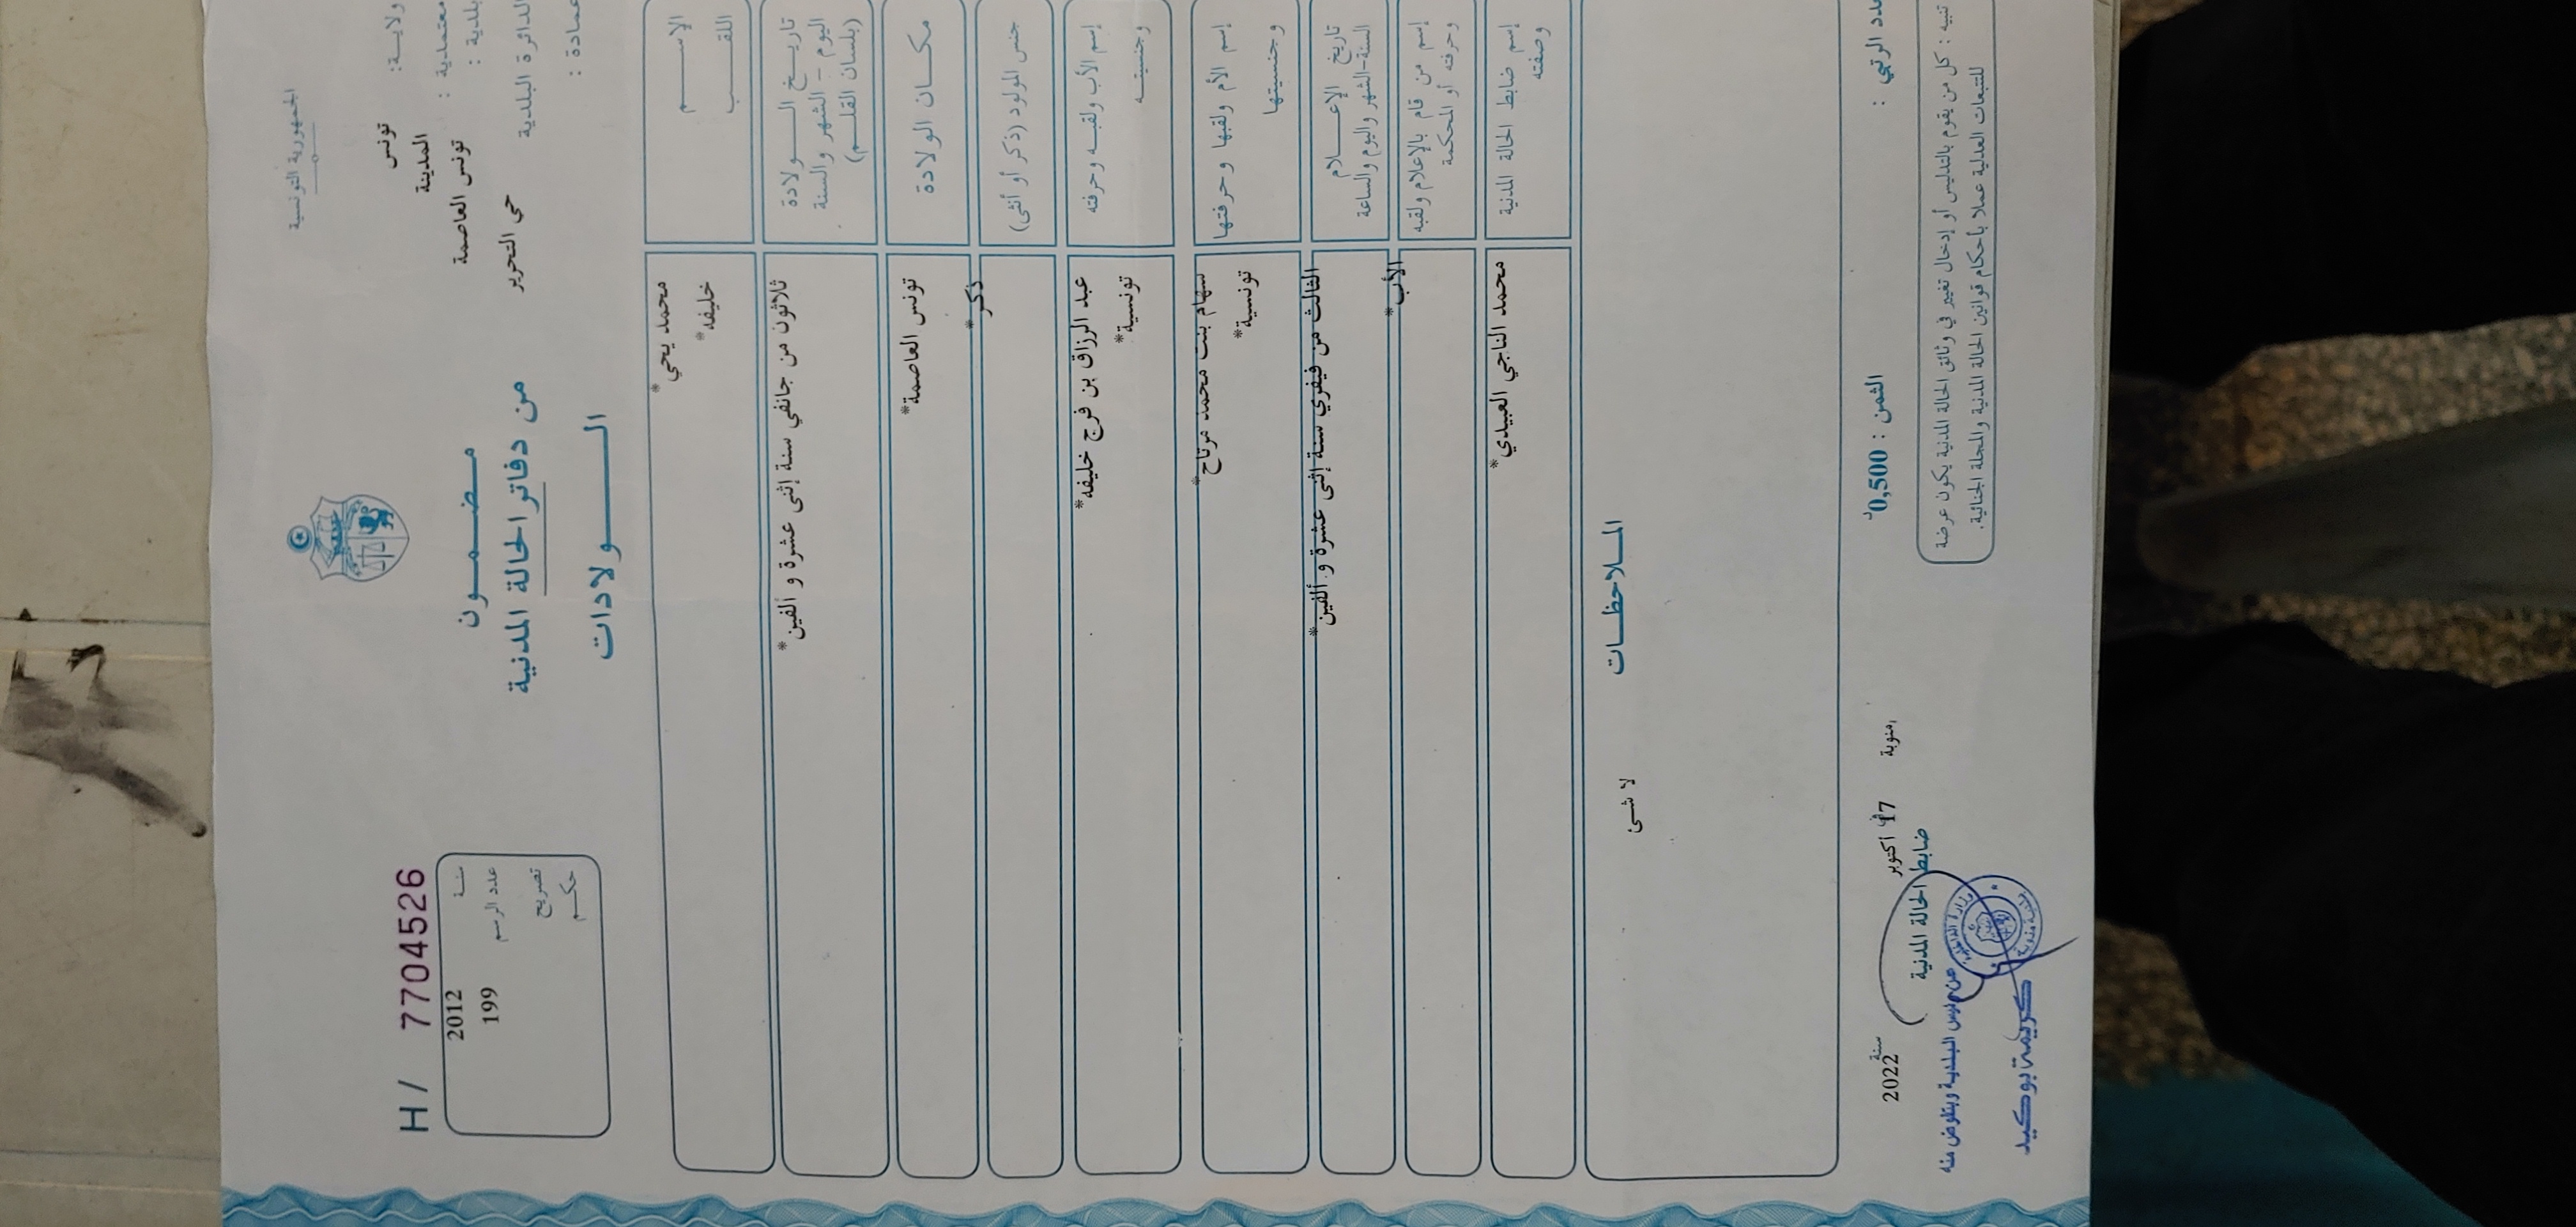 الجمهورية التونسية
ولاية: تونس
معتمدية : المدينة
بلدية : تونس العاصمة
الدائرة البلدية حي التحرير
عمادة :
H/ 7704526
سنة 2012
عدد الرسم 199
تصريح
حكم
مضمون
من دفاتر الحالة المدنية
الولادات
الاسم محمد يحي*
اللقب خليفه*
تاريخ الولادة ثلاثون من جانفي سنة إثنى عشرة و ألفين*
اليوم - الشهر والسنة
(بلسان القلم)
مكان الولادة تونس العاصمة*
جنس المولود (ذكر أو أنثى) ذكر*
إسم الأب ولقبه وحرفته عبد الرزاق بن فرج خليفه*
وجنسيته تونسية*
إسم الأم ولقبها وحرفتها سهام بنت محمد مرتاح*
وجنسيتها تونسية*
تاريخ الإعلام الثالث من فيفري سنة إثنى عشرة و ألفين*
السنة-الشهر واليوم والساعة
إسم من قام بالإعلام ولقبه الأب*
وحرفته أو المحكمة
إسم ضابط الحالة المدنية محمد الناجي العبيدي*
وصفته
الملاحظات
لا شئ
عدد الرتبي : الثمن : 0,500د
منوبة 17 أكتوبر سنة 2022
ضابط الحالة المدنية
تنبيه : كل من يقوم بالتدليس أو إدخال تغيير في وثائق الحالة المدنية يكون عرضة
للتتبعات العدلية عملا بأحكام قوانين الحالة المدنية والمجلة الجنائية.
البلدية وبتفويض منه
كريمة بوكيد